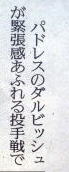 パドレスのダルビッシュ
が緊張感あふれる投手戦で